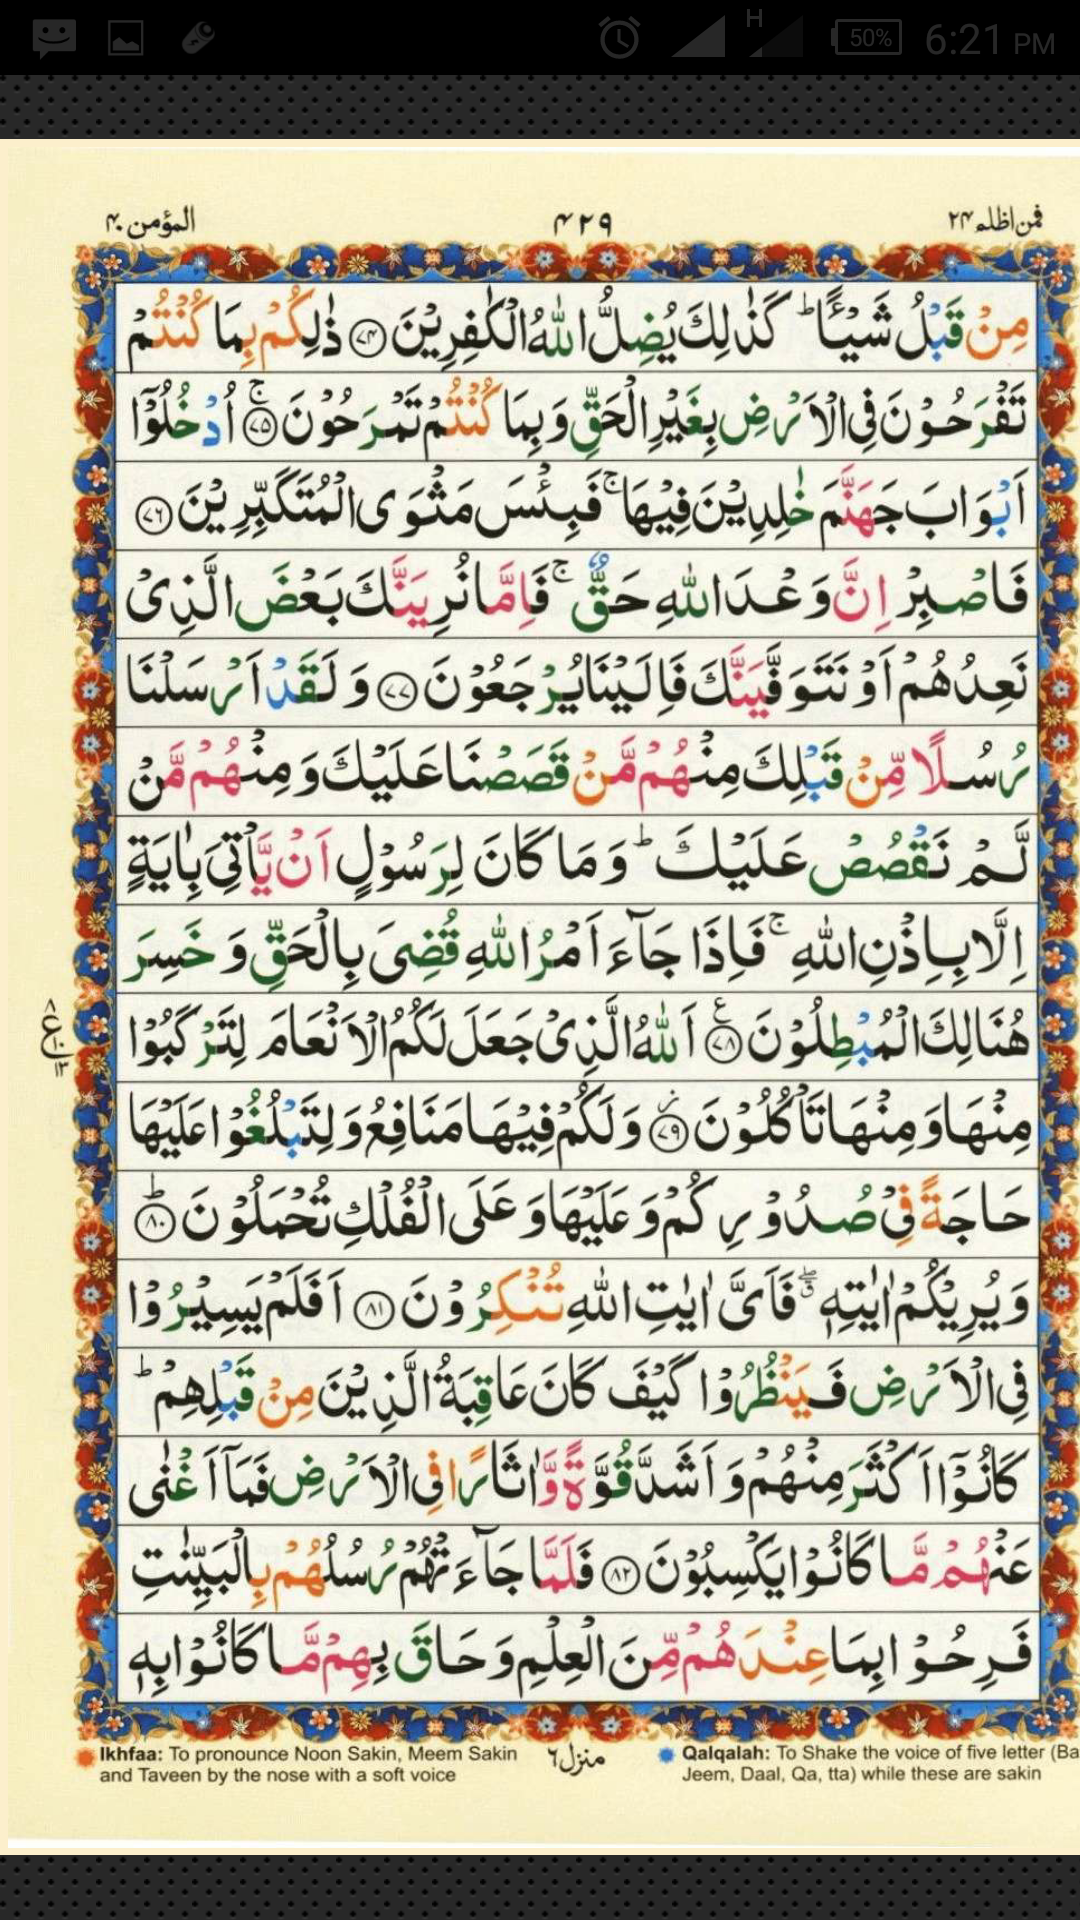 50% 6:21 PM
H
فمن اظلم ۲۴
۴۲۹
المؤمن ۴۰
مِنْ قَبْلُ شَيْـًٔا ؕ كَذٰلِكَ يُضِلُّ اللّٰهُ الْكٰفِرِيْنَ ﴿۷۴﴾ ذٰلِكُمْ بِمَا كُنْتُمْ
تَفْرَحُوْنَ فِى الْاَرْضِ بِغَيْرِ الْحَقِّ وَبِمَا كُنْتُمْ تَمْرَحُوْنَ ۚ﴿۷۵﴾ اُدْخُلُوْۤا
اَبْوَابَ جَهَنَّمَ خٰلِدِيْنَ فِيْهَا ۚ فَبِئْسَ مَثْوَى الْمُتَكَبِّرِيْنَ ﴿۷۶﴾
فَاصْبِرْ اِنَّ وَعْدَ اللّٰهِ حَقٌّ ۚ فَاِمَّا نُرِيَنَّكَ بَعْضَ الَّذِىْ
نَعِدُهُمْ اَوْ نَتَوَفَّيَنَّكَ فَاِلَيْنَا يُرْجَعُوْنَ ﴿۷۷﴾ وَلَقَدْ اَرْسَلْنَا
رُسُلًا مِّنْ قَبْلِكَ مِنْهُمْ مَّنْ قَصَصْنَا عَلَيْكَ وَمِنْهُمْ مَّنْ
لَّمْ نَقْصُصْ عَلَيْكَ ؕ وَمَا كَانَ لِرَسُوْلٍ اَنْ يَّاْتِىَ بِاٰيَةٍ
اِلَّا بِاِذْنِ اللّٰهِ ۚ فَاِذَا جَآءَ اَمْرُ اللّٰهِ قُضِىَ بِالْحَقِّ وَخَسِرَ
هُنَالِكَ الْمُبْطِلُوْنَ ﴿۷۸﴾ اَللّٰهُ الَّذِىْ جَعَلَ لَكُمُ الْاَنْعَامَ لِتَرْكَبُوْا
۸ ع ۱۰ ۱۳
مِنْهَا وَمِنْهَا تَاْكُلُوْنَ ﴿۷۹﴾ وَلَكُمْ فِيْهَا مَنَافِعُ وَلِتَبْلُغُوْا عَلَيْهَا
حَاجَةً فِىْ صُدُوْرِكُمْ وَعَلَيْهَا وَعَلَى الْفُلْكِ تُحْمَلُوْنَ ؕ﴿۸۰﴾
وَيُرِيْكُمْ اٰيٰتِهٖ ۖ فَاَىَّ اٰيٰتِ اللّٰهِ تُنْكِرُوْنَ ﴿۸۱﴾ اَفَلَمْ يَسِيْرُوْا
فِى الْاَرْضِ فَيَنْظُرُوْا كَيْفَ كَانَ عَاقِبَةُ الَّذِيْنَ مِنْ قَبْلِهِمْ ؕ
كَانُوْۤا اَكْثَرَ مِنْهُمْ وَاَشَدَّ قُوَّةً وَّاٰثَارًا فِى الْاَرْضِ فَمَاۤ اَغْنٰى
عَنْهُمْ مَّا كَانُوْا يَكْسِبُوْنَ ﴿۸۲﴾ فَلَمَّا جَآءَتْهُمْ رُسُلُهُمْ بِالْبَيِّنٰتِ
فَرِحُوْا بِمَا عِنْدَهُمْ مِّنَ الْعِلْمِ وَحَاقَ بِهِمْ مَّا كَانُوْا بِهٖ
Ikhfaa: To pronounce Noon Sakin, Meem Sakin
and Taveen by the nose with a soft voice
منزل ۶
Qalqalah: To Shake the voice of five letter (Ba
Jeem, Daal, Qa, tta) while these are sakin